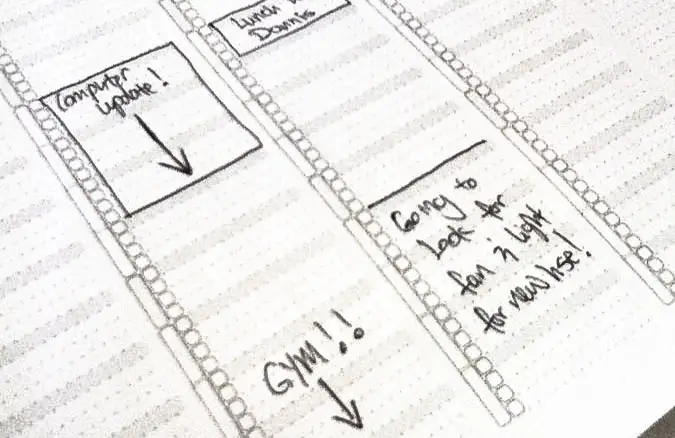 Computer
update!
Lunch
Dannis
Going to
Look for
fan n' light
for new hse!
GYM!!